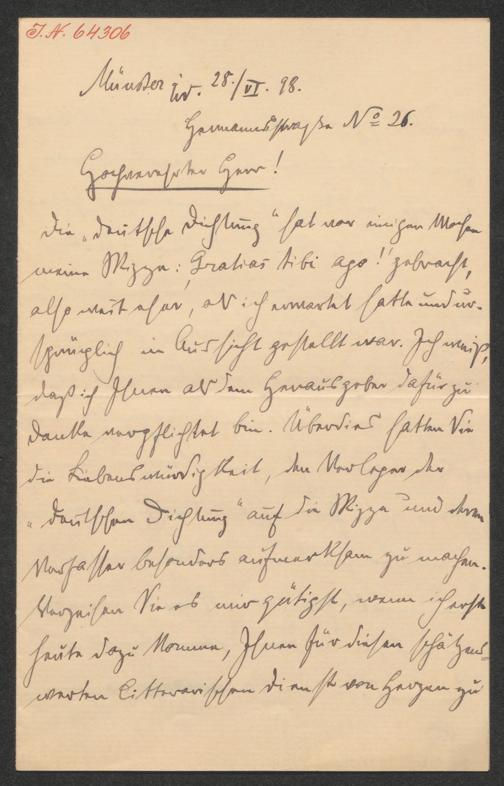 I.N. 64306
Münster i/W. 28./VI. 98.
Hermannstraße No 26.
Hochverehrter Herr!
Die „Deutsche Dichtung“ hat vor einigen Wochen
meine Skizze: „Gratias tibi ago!“ gebracht,
also weit eher, als ich erwartet hatte und ur-
sprünglich in Aussicht gestellt war. Ich weiß,
daß ich Ihnen als dem Herausgeber dafür zu
Danke verpflichtet bin. Überdies hatten Sie
die Liebenswürdigkeit, den Verleger der
„Deutschen Dichtung“ auf die Skizze und deren
Verfasser besonders aufmerksam zu machen.
Verzeihen Sie es mir gütigst, wenn ich erst
heute dazu komme, Ihnen für diesen schätzens-
werten litterarischen Dienst von Herzen zu